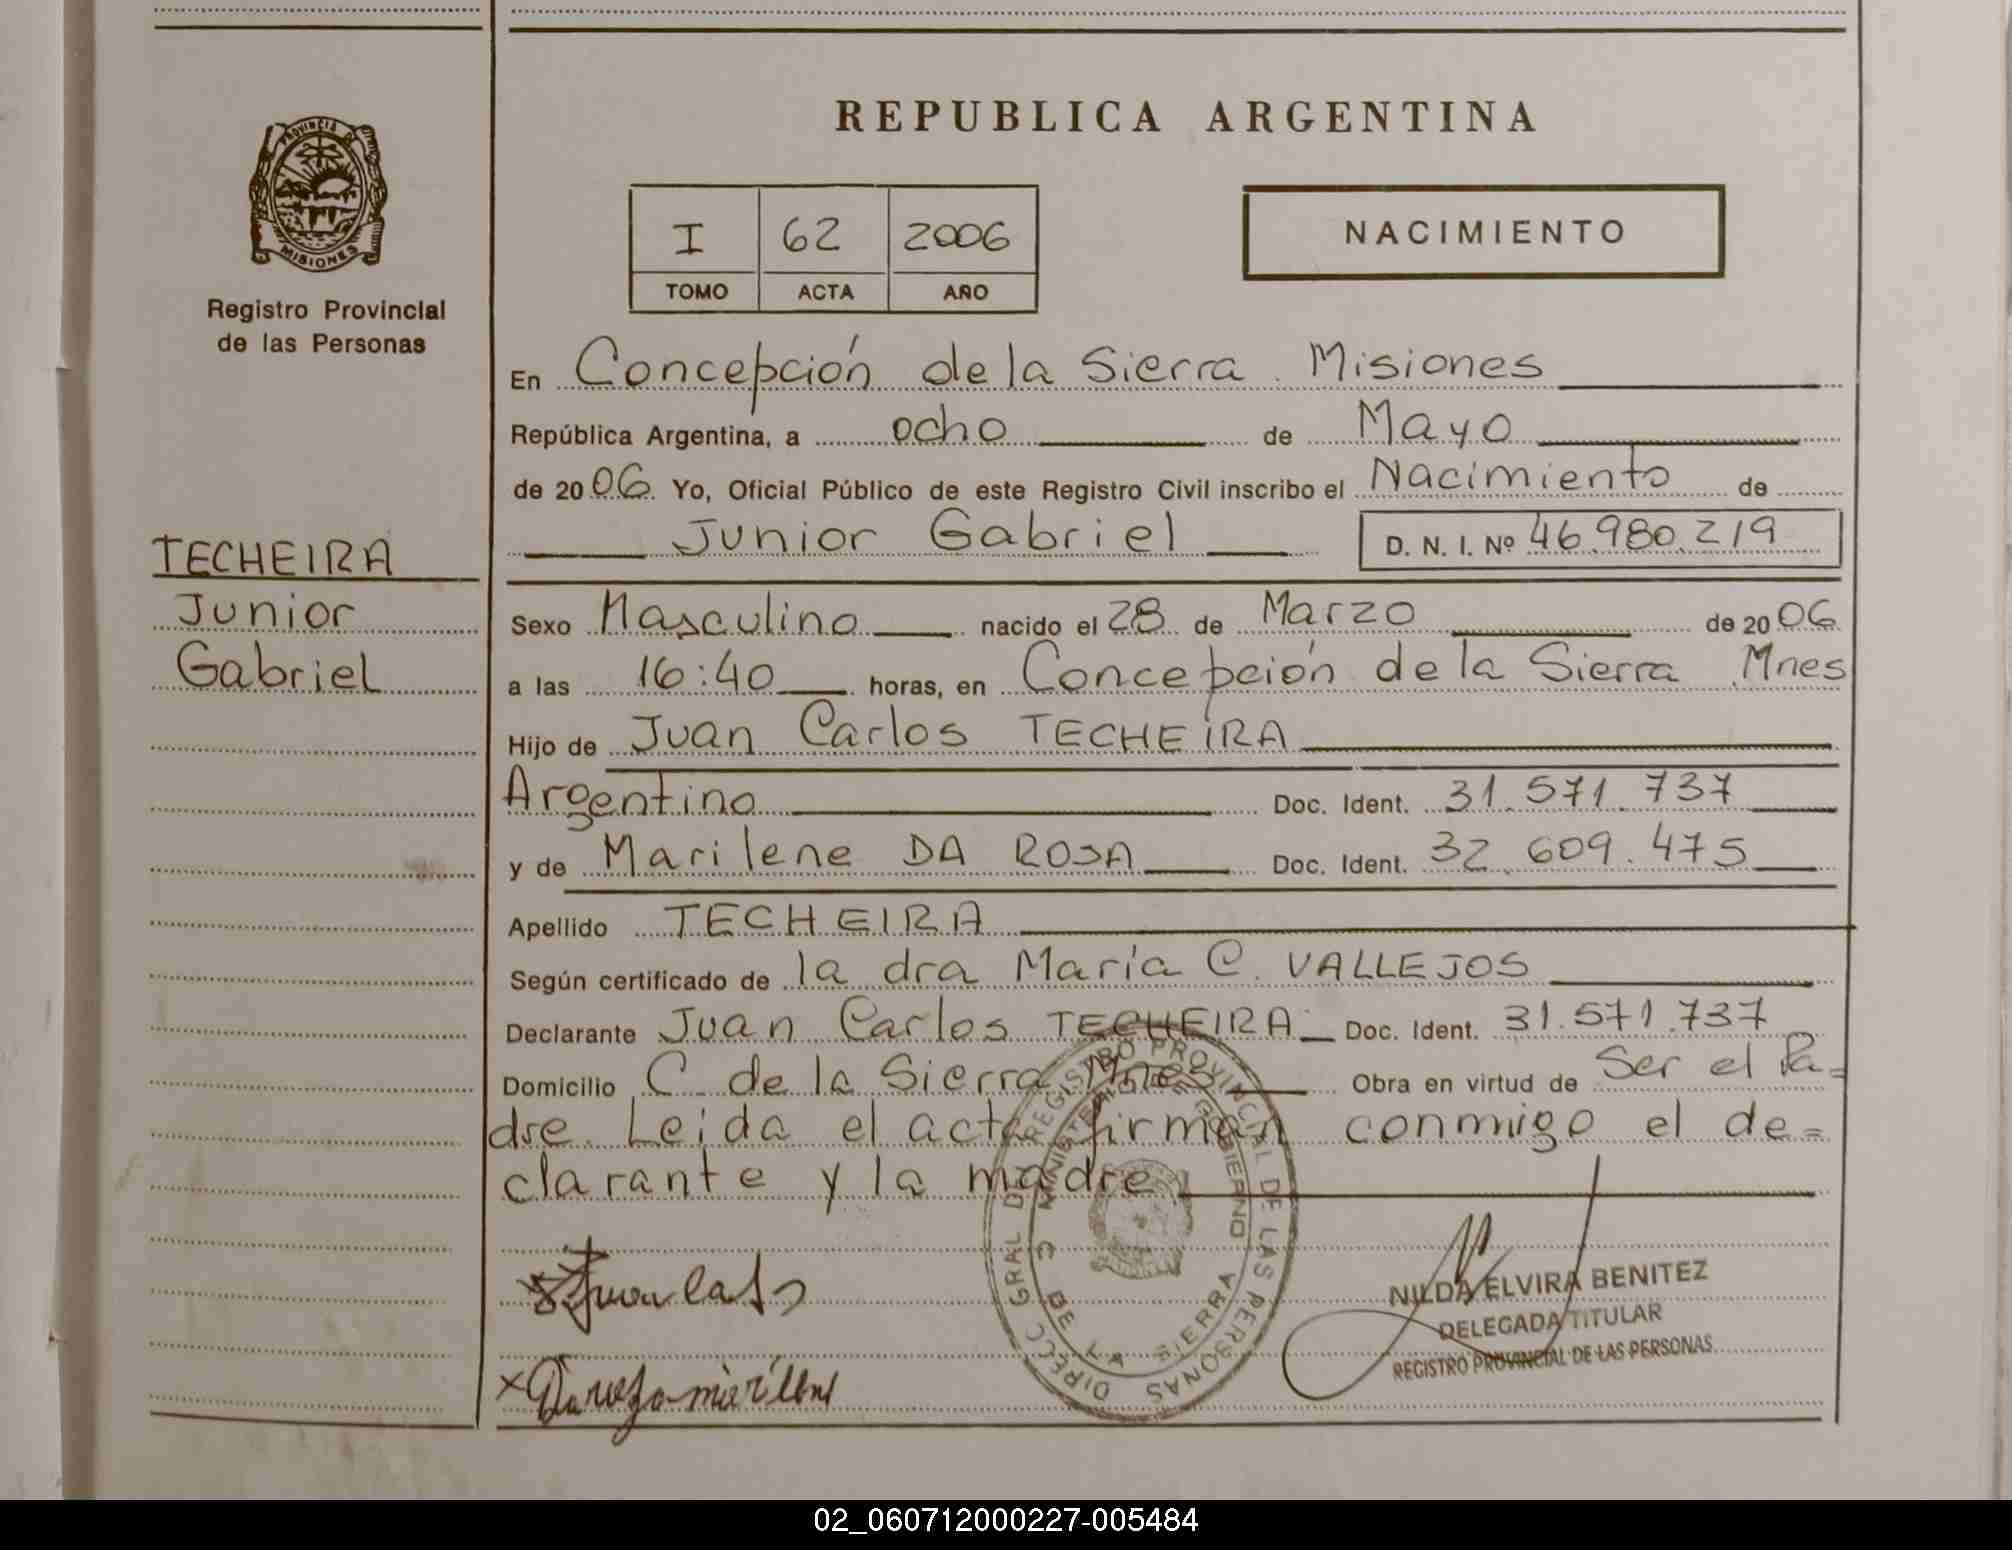 REPUBLICA ARGENTINA
PROVINCIA DE MISIONES
Registro Provincial
de las Personas
I 62 2006
TOMO ACTA AÑO
NACIMIENTO
En Concepción de la Sierra. Misiones
República Argentina, a ocho de Mayo
de 2006. Yo, Oficial Público de este Registro Civil inscribo el Nacimiento de
Junior Gabriel D. N. I. Nº 46.980.219
TECHEIRA
Junior
Gabriel
Sexo Masculino nacido el 28 de Marzo de 2006
a las 16:40 horas, en Concepción de la Sierra Mnes
Hijo de Juan Carlos TECHEIRA
Argentino Doc. Ident. 31.571.737
y de Marilene DA ROSA Doc. Ident. 32.609.475
Apellido TECHEIRA
Según certificado de la dra María C. VALLEJOS
Declarante Juan Carlos TECHEIRA Doc. Ident. 31.571.737
Domicilio C. de la Sierra Mnes Obra en virtud de Ser el Pa=
dre. Leida el acta firman conmigo el de=
clarante y la madre.
DIRECC GRAL DE REGISTRO PROVINCIAL DE LAS PERSONAS
MINISTERIO DE GOBIERNO
C DE LA SIERRA
NILDA ELVIRA BENITEZ
DELEGADA TITULAR
REGISTRO PROVINCIAL DE LAS PERSONAS
02_060712000227-005484